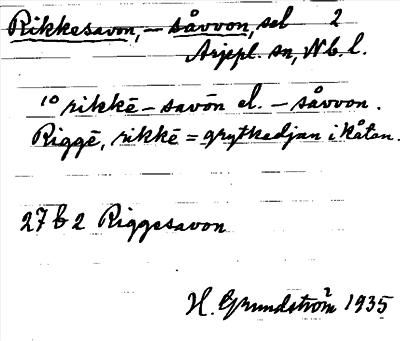 Rikkesavon, – såvvon, sel 2
Arjepl. sn, Nb. l.
10 rikkē – savōn el. – såvvon.
Riggē, rikkē = grytkedjan i kåtan.
27 b 2 Riggesavon
H. Grundström 1935